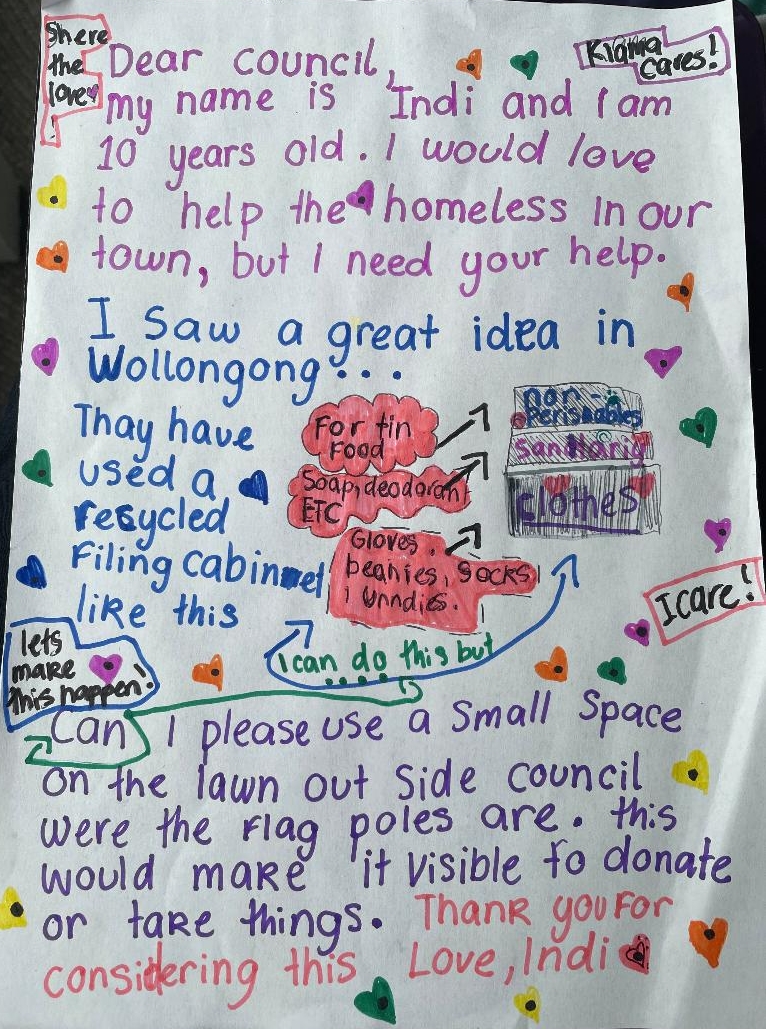 Shere
the
love
!
Kiama
cares!
Dear council,
my name is Indi and I am
10 years old. I would love
to help the homeless in our
town, but I need your help.
I saw a great idea in
Wollongong...
Thay have
used a
recycled
Filing cabinnet
like this
For tin
Food
Soap, deodorant
ETC
Gloves,
beanies, socks
, unndies.
non-
perishables
sanitariy
clothes
I can do this but
....
I care!
lets
make
this happen!
Can I please use a small space
on the lawn out side council
were the flag poles are. this
would make it visible to donate
or take things. Thank you for
considering this Love, Indi